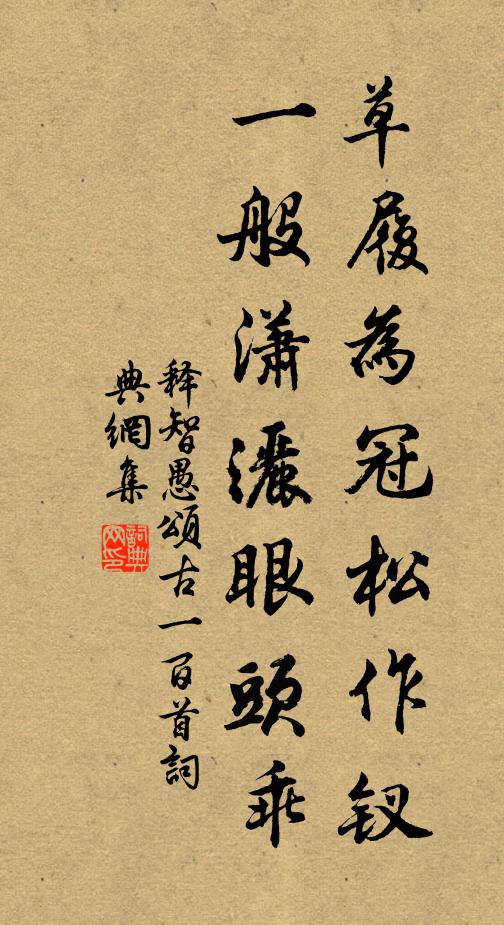 草履為冠松作钗
一般瀟灑眼頭乖
释智愚頌古一百首詞
典網集
詞典網印